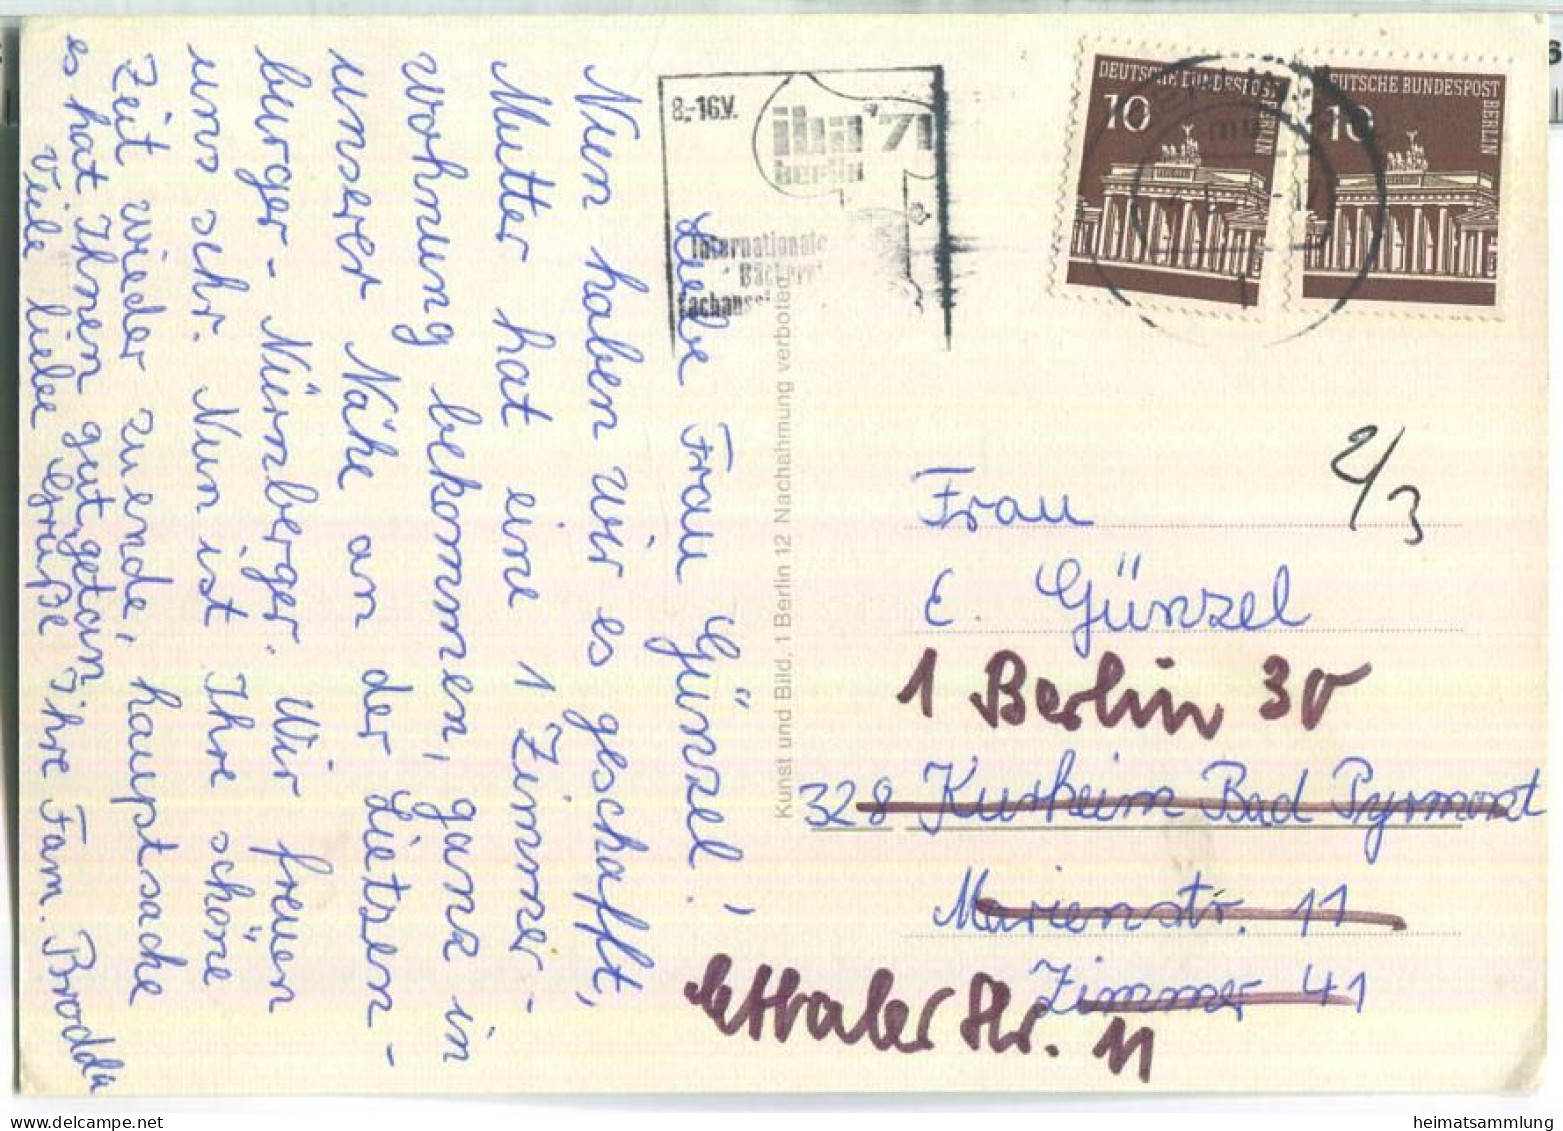 Liebe Frau Günzel,
Nun haben wir es geschafft,
Mutter hat eine 1 Zimmer-
wohnung bekommen, ganz in
unserer Nähe an der Lietzen-
burger-Nürnberger. Wir freuen
uns sehr. Nun ist Ihre schöne
Zeit wieder zuende, hauptsache
es hat Ihnen gut getan,
Viele liebe Grüße ihre Fam. Brodda
Kunst und Bild, 1 Berlin 12 Nachahmung verboten
8.-16.V.
iba '71
berlin
Internationale
Bäckerei
DEUTSCHE BUNDESPOST BERLIN
10
DEUTSCHE BUNDESPOST BERLIN
10
2/3
Frau
E. Günzel
1 Berlin 30
328 Kurheim Bad Pyrmont
Marienstr. 11
Zimmer 41
Ettaler Str. 11
heimatsammlung